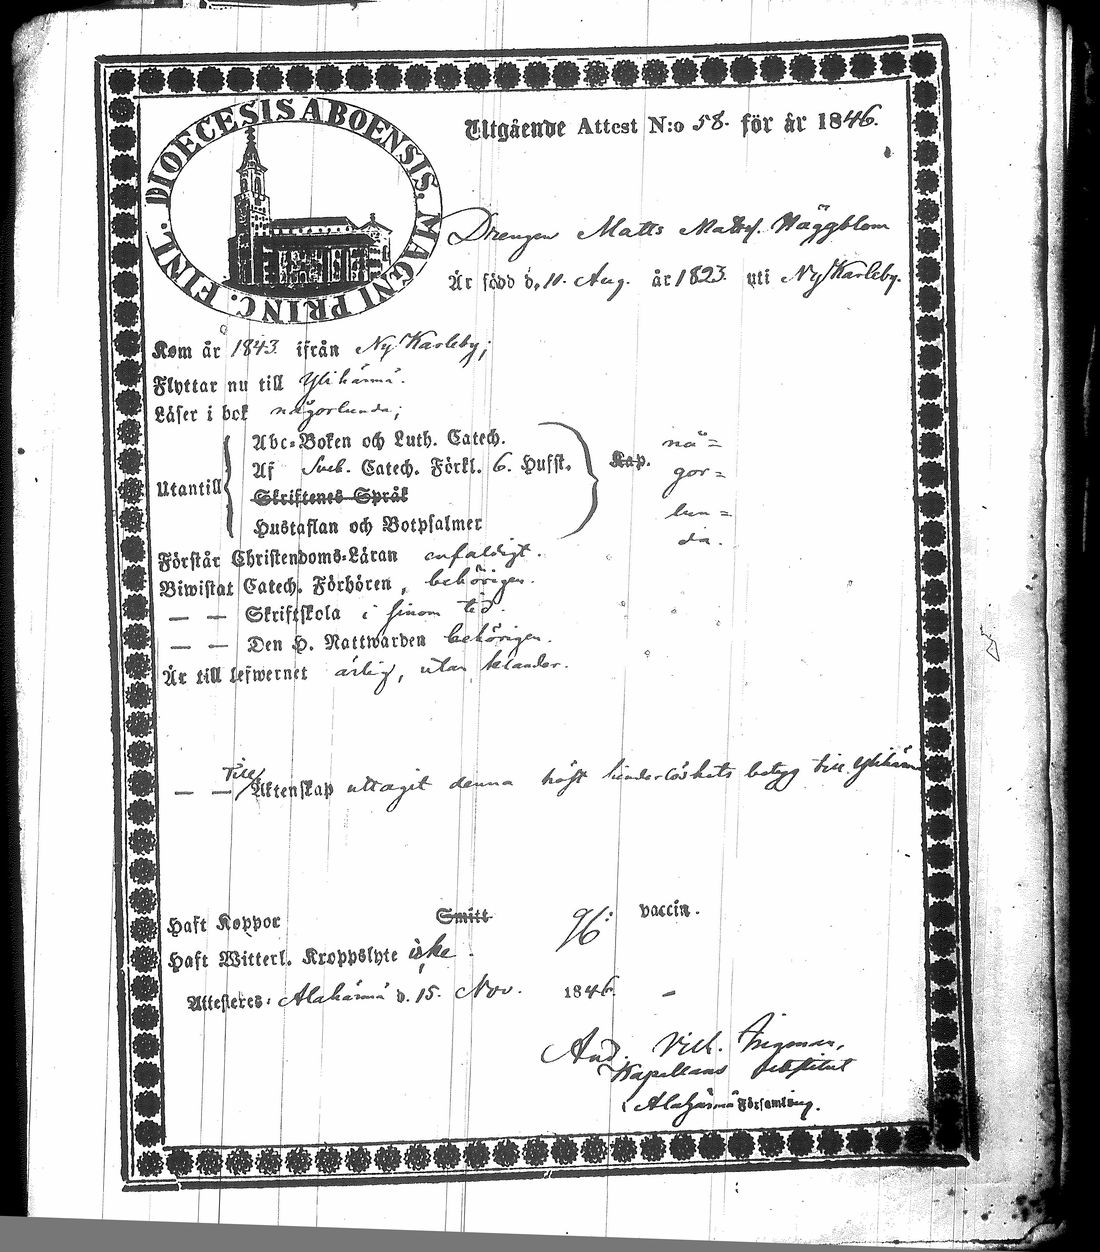 DIOECESIS ABOENSIS. MAGNI PRINC. FINL.
Utgående Attest N:o 58. för år 1846.
Drengen Matts Matts. Häggblom
Är född d. 10. Aug. år 1823. uti NyKarleby.
Kom år 1843. ifrån NyKarleby;
Flyttar nu till Ylihärmä.
Läser i bok någorlunda;
Abc-Boken och Luth. Catech. nå=
Utantill Af Sveb. Catech. Förkl. 6. Hufst. Kap. gor=
Skriftenes Språk lun=
Hustaflan och Botpsalmer da.
Förstår Christendoms-Läran enfaldigt.
Biwistat Catech. Förhören, behörigen.
— — Skriftskola i sinom tid.
— — Den H. Nattwarden behörigen.
Är till lefwernet ärlig, utan klander.
— — Till Äktenskap uttagit denna höst hinderlöshets betyg till Ylihärmä
Haft Koppor Smitt vaccin.
Haft Witterl. Kroppslyte icke.
Attesteres: Alahärmä d. 15. Nov. 1846. —
And. Vilh.
Kapellans
i Alahärmä Församling.